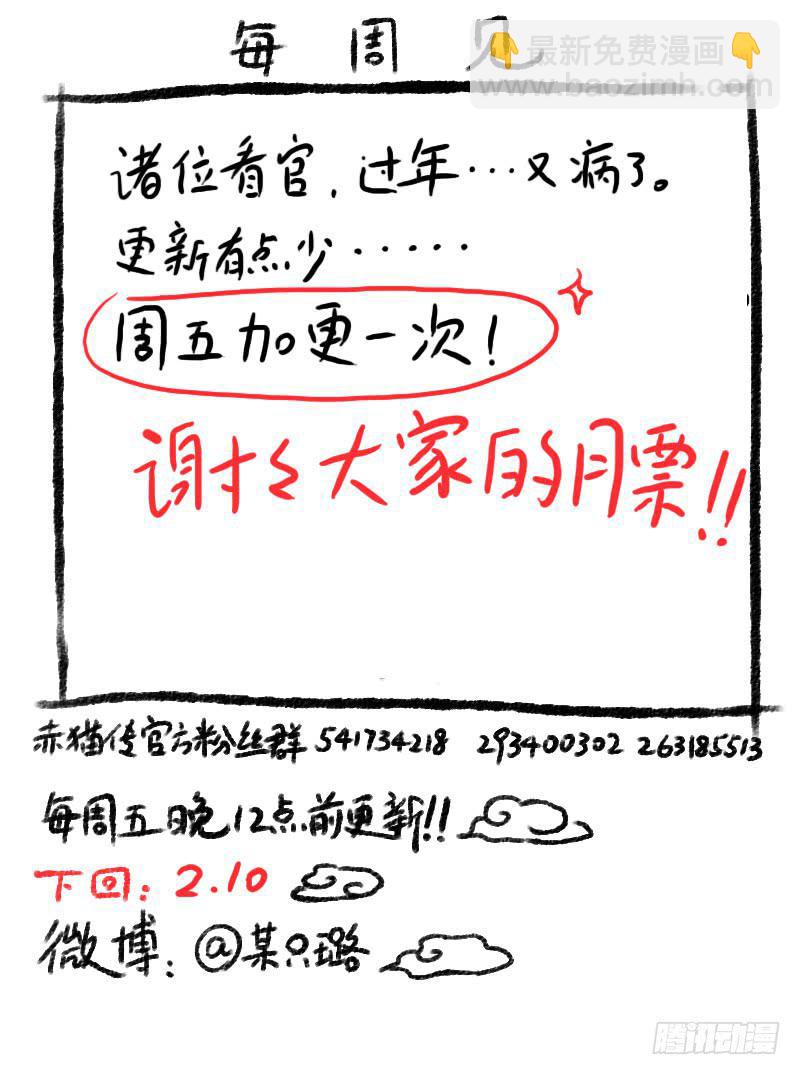 每周见
👇最新免费漫画👇
www.baozimh.com
诸位看官，过年…又病了。
更新有点少……
周五加更一次！
谢谢大家的月票！！
赤猫传官方粉丝群 541734218 293400302 263185513
每周五晚12点前更新！！
下回：2.10
微博：@某只璐
腾讯动漫